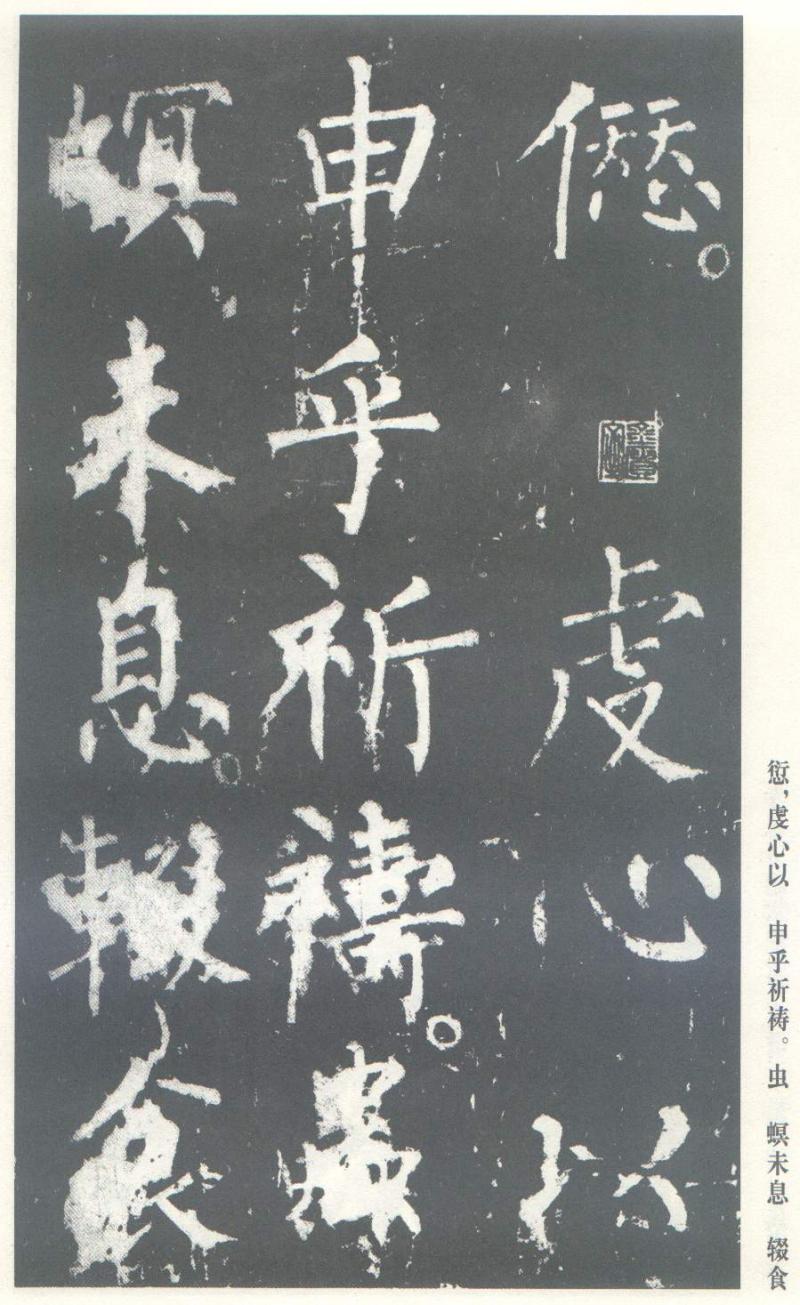 愆。虔心以
申乎祈禱。蟲
螟未息。輟食
愆，虔心以　申乎祈祷。虫　螟未息　辍食